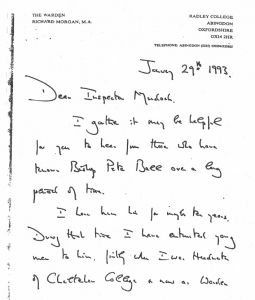 THE WARDEN
RICHARD MORGAN, M.A.
RADLEY COLLEGE
ABINGDON
OXFORDSHIRE
OX14 2HR
TELEPHONE: ABINGDON
January 29th 1993.
Dear Inspector Murdoch,
I gather it may be helpful
for you to hear from those who have
known Bishop Peter Ball over a long
period of time.
I have known him for years.
During that time I have entrusted young
men to him, firstly when I was Headmaster
of Cheltenham College & now as Warden